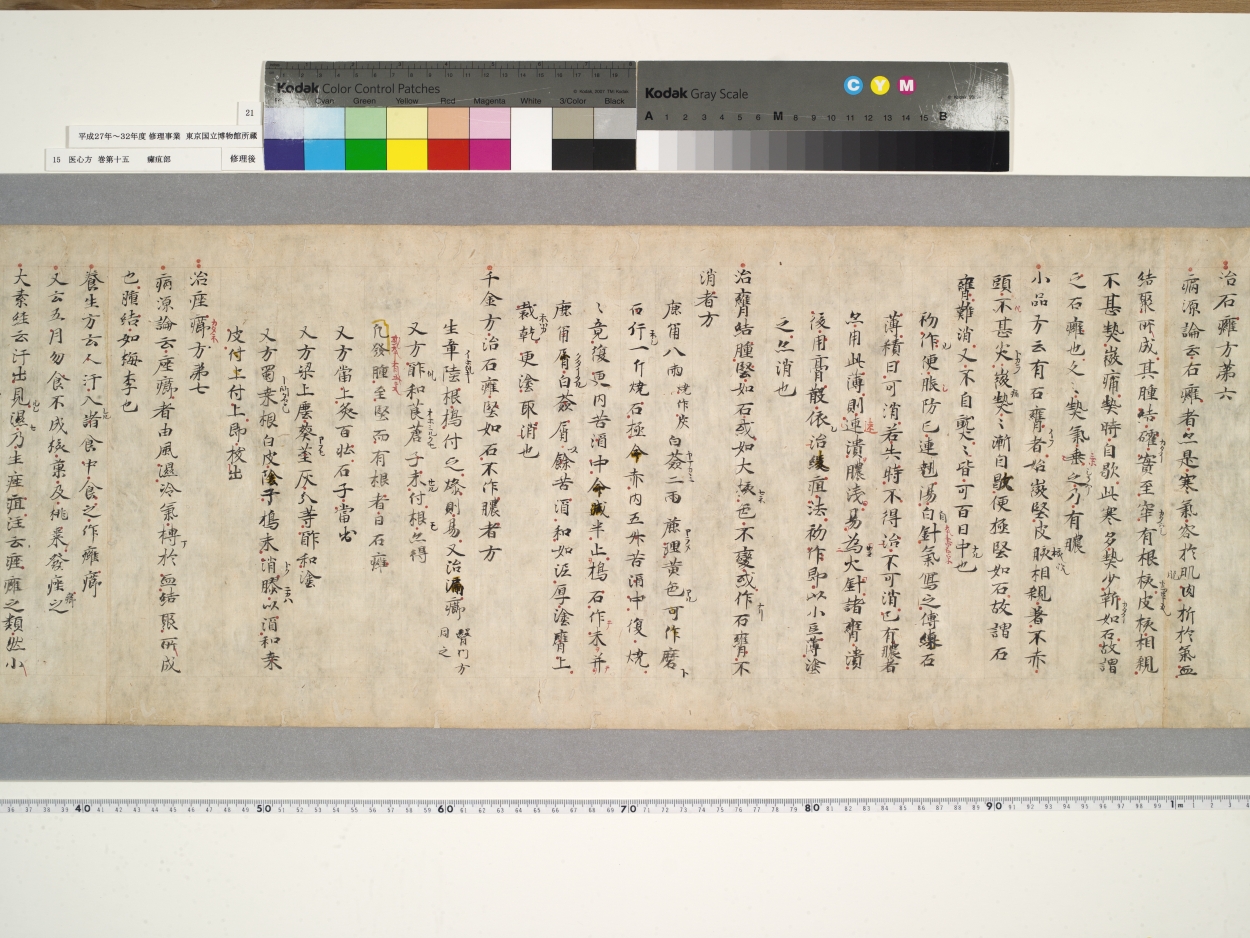 Kodak Color Control Patches
Cyan Green Yellow Red Magenta White 3/Color Black
Kodak Gray Scale
C Y M
A 1 2 3 4 5 6 M 8 9 10 11 12 13 14 15 B
21
平成27年~32年度 修理事業 東京国立博物館所蔵
15 医心方 巻第十五 癰疽部 修理後
治石癰方第六
病源論云石癰者亦是寒氣客於肌肉折於氣血
結聚所成其腫結確實至牢有根核皮核相親
不甚熱嶶痛熱時自歇此寒多熱少鞕如石故謂
之石癰也久久熱氣乗之乃有膿
小品方云有石癰者始嶶堅皮核相親著不赤
頭不甚尖嶶熱熱漸自歇便極堅如石故謂石
癰難消又不自熟熟皆可百日中也
初作便服防已連翹湯白針氣寫之傅練石
薄積日可消若失時不得治不可消已有膿者
亦用此薄則速潰膿淺易為火針諸癰潰
後用膏散依治緩疽法初作即以小豆薄塗
之亦消也
治癰結腫堅如石或如大核色不變或作石癰不
消者方
鹿角八兩燒作灰白蘞二兩 麁理黄色可作磨
石行一斤燒石極令赤内五升苦酒中復燒
〻竟復更内苦酒中令減半止搗石作末并
鹿角屑白蘞屑餘苦酒和如泥厚塗癰上
裁乾更塗取消也
千金方治石癰堅如石不作膿者方
生章陸根搗付之燥則易又治漏癤 腎門方同之
又方酢和莨菪子末付根亦得
凡發腫至堅而有根者曰石癰
又方當上灸百壮石子當出
又方梁上塵葵莖灰分等酢和塗
又方蜀桒根白皮陰干搗末消膠以酒和桒
皮付上付上即杖出
治痤癤方第七
病源論云痤癤者由風濕冷氣搏於血結聚所成
也腫結如梅李也
養生方云人汗入諸食中食之作癰癤
又云五月勿食不成核菓及桃棗發痤之
大素経云汗出見濕乃生痤疽注云痤癰之類然小
40 50 60 70 80 90 1m